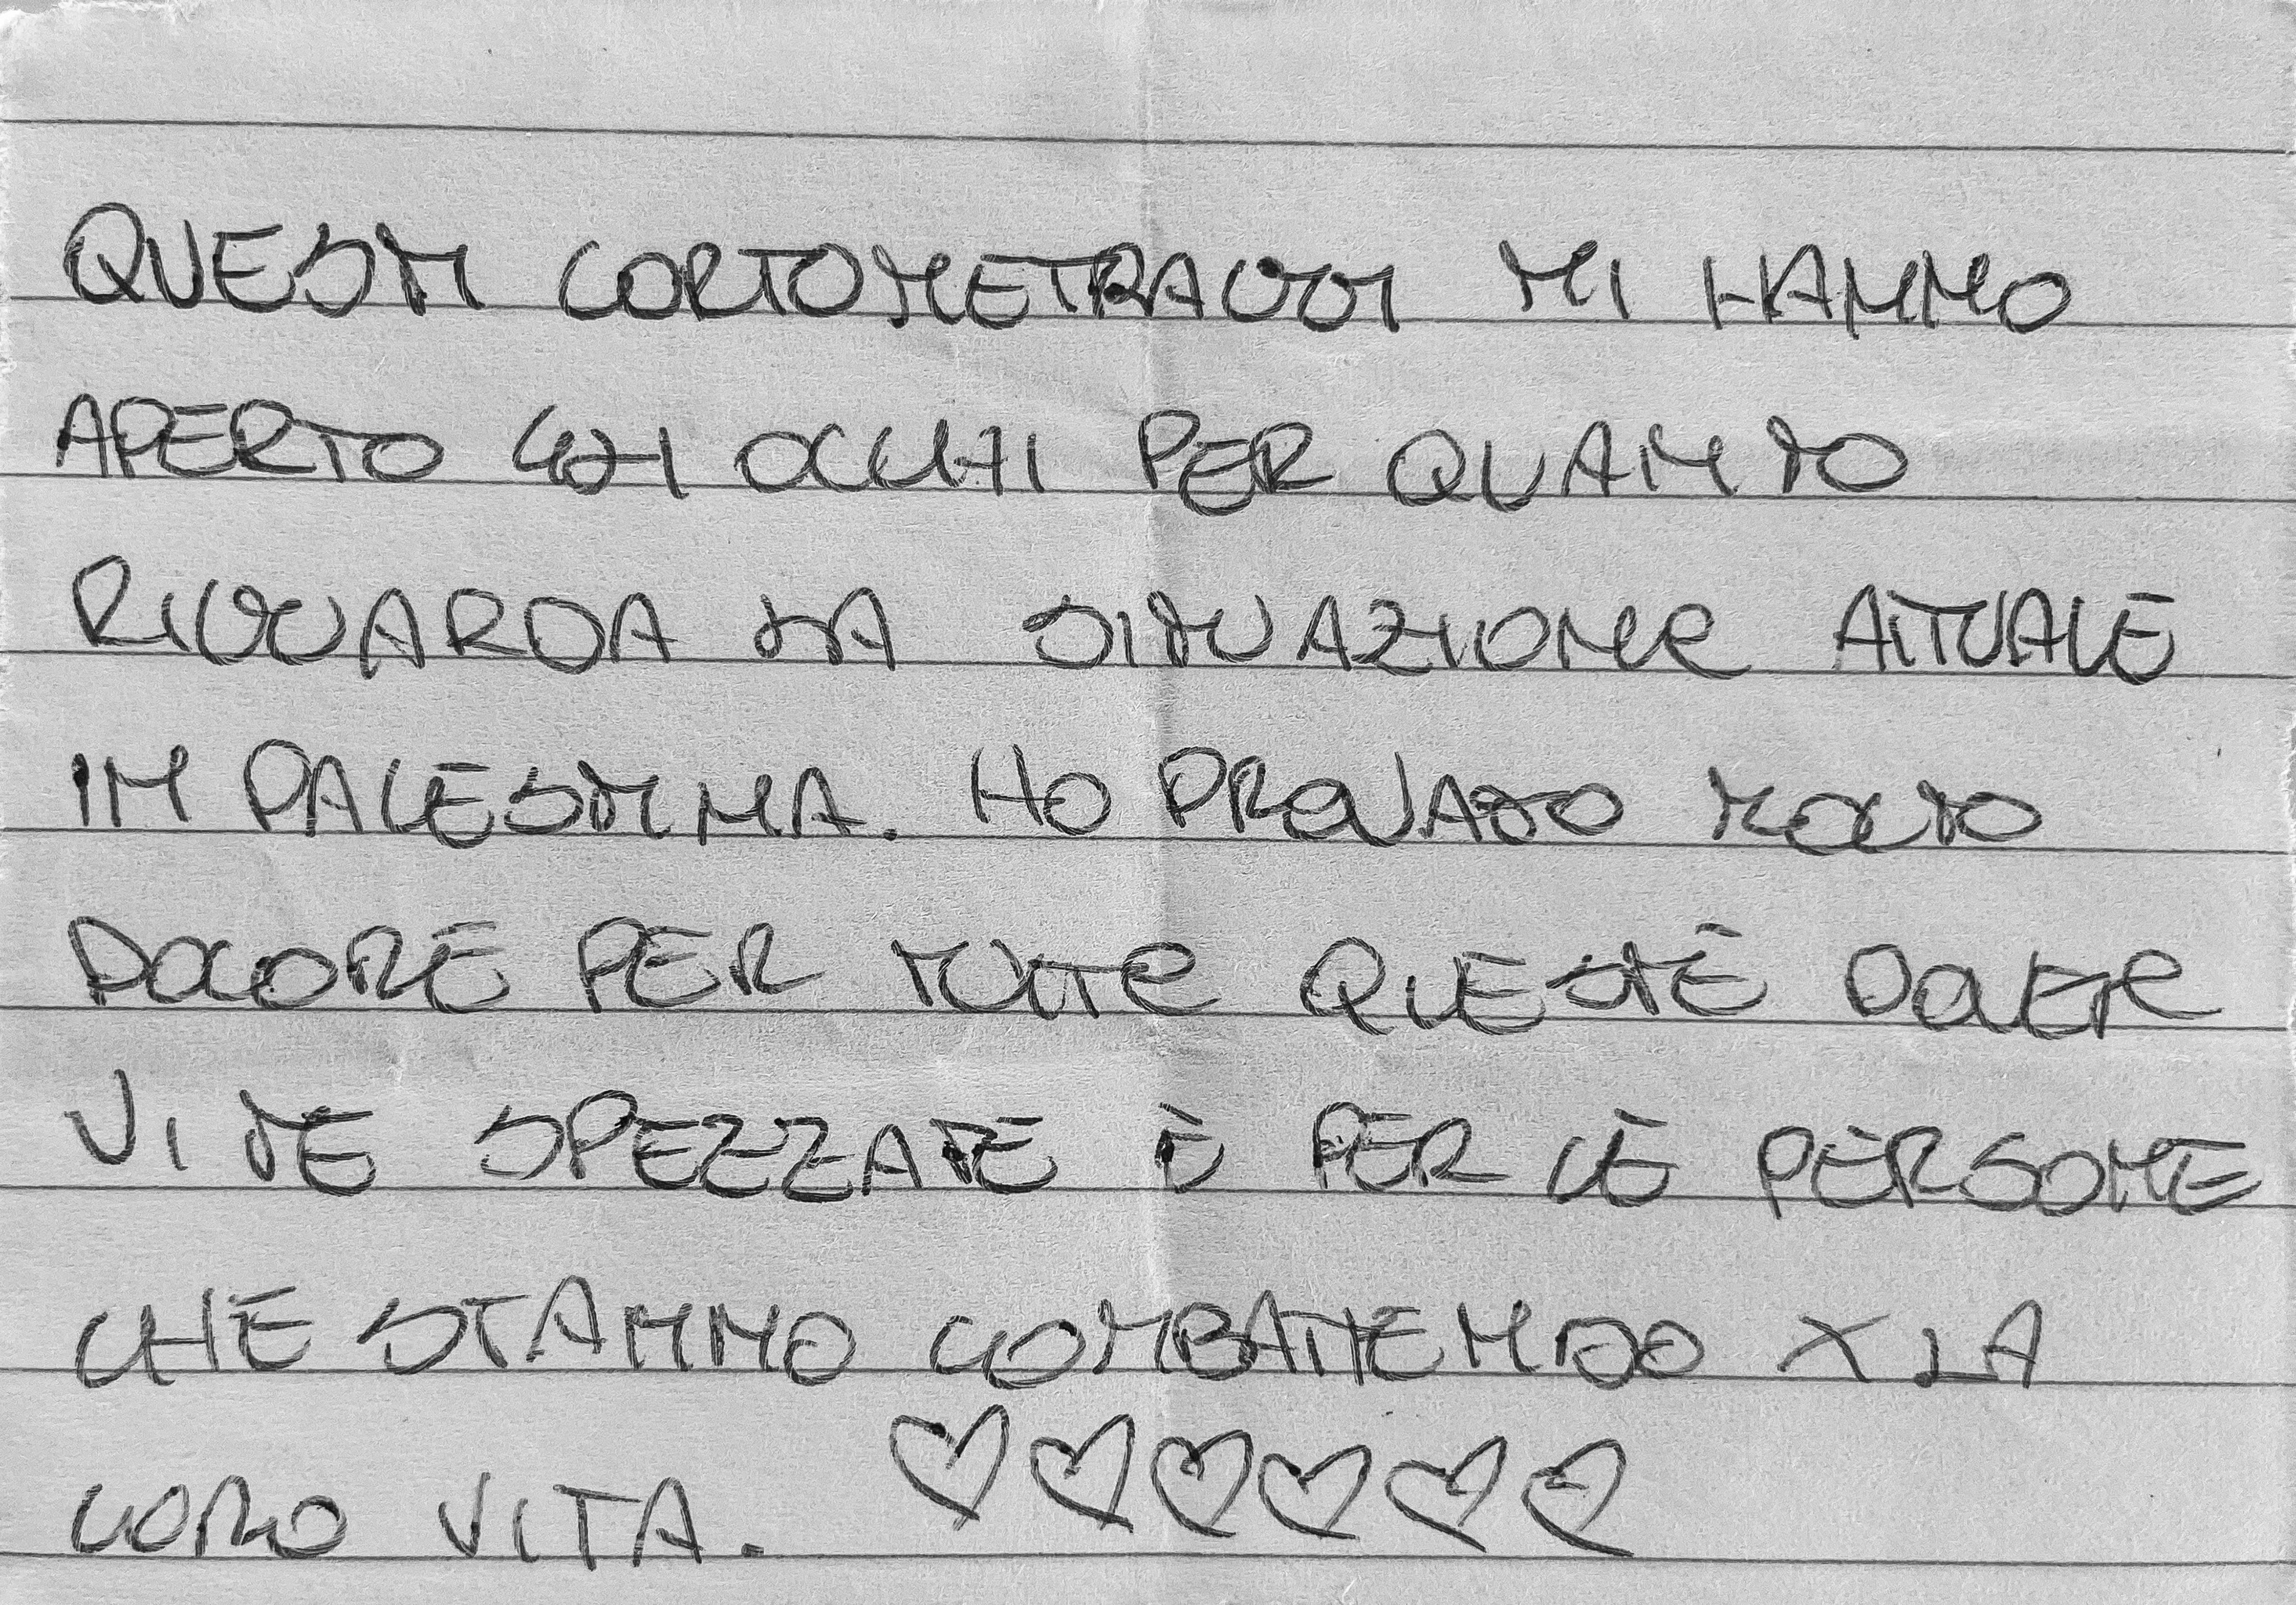 QUESTI CORTOMETRAGGI MI HANNO
APERTO GLI OCCHI PER QUANTO
RIGUARDA LA SITUAZIONE ATTUALE
IN PALESTINA. HO PROVATO MOLTO
DOLORE PER TUTTE QUESTE
VITE SPEZZATE E PER LE PERSONE
CHE STANNO COMBATTENDO X LA
LORO VITA. ♡♡♡♡♡♡